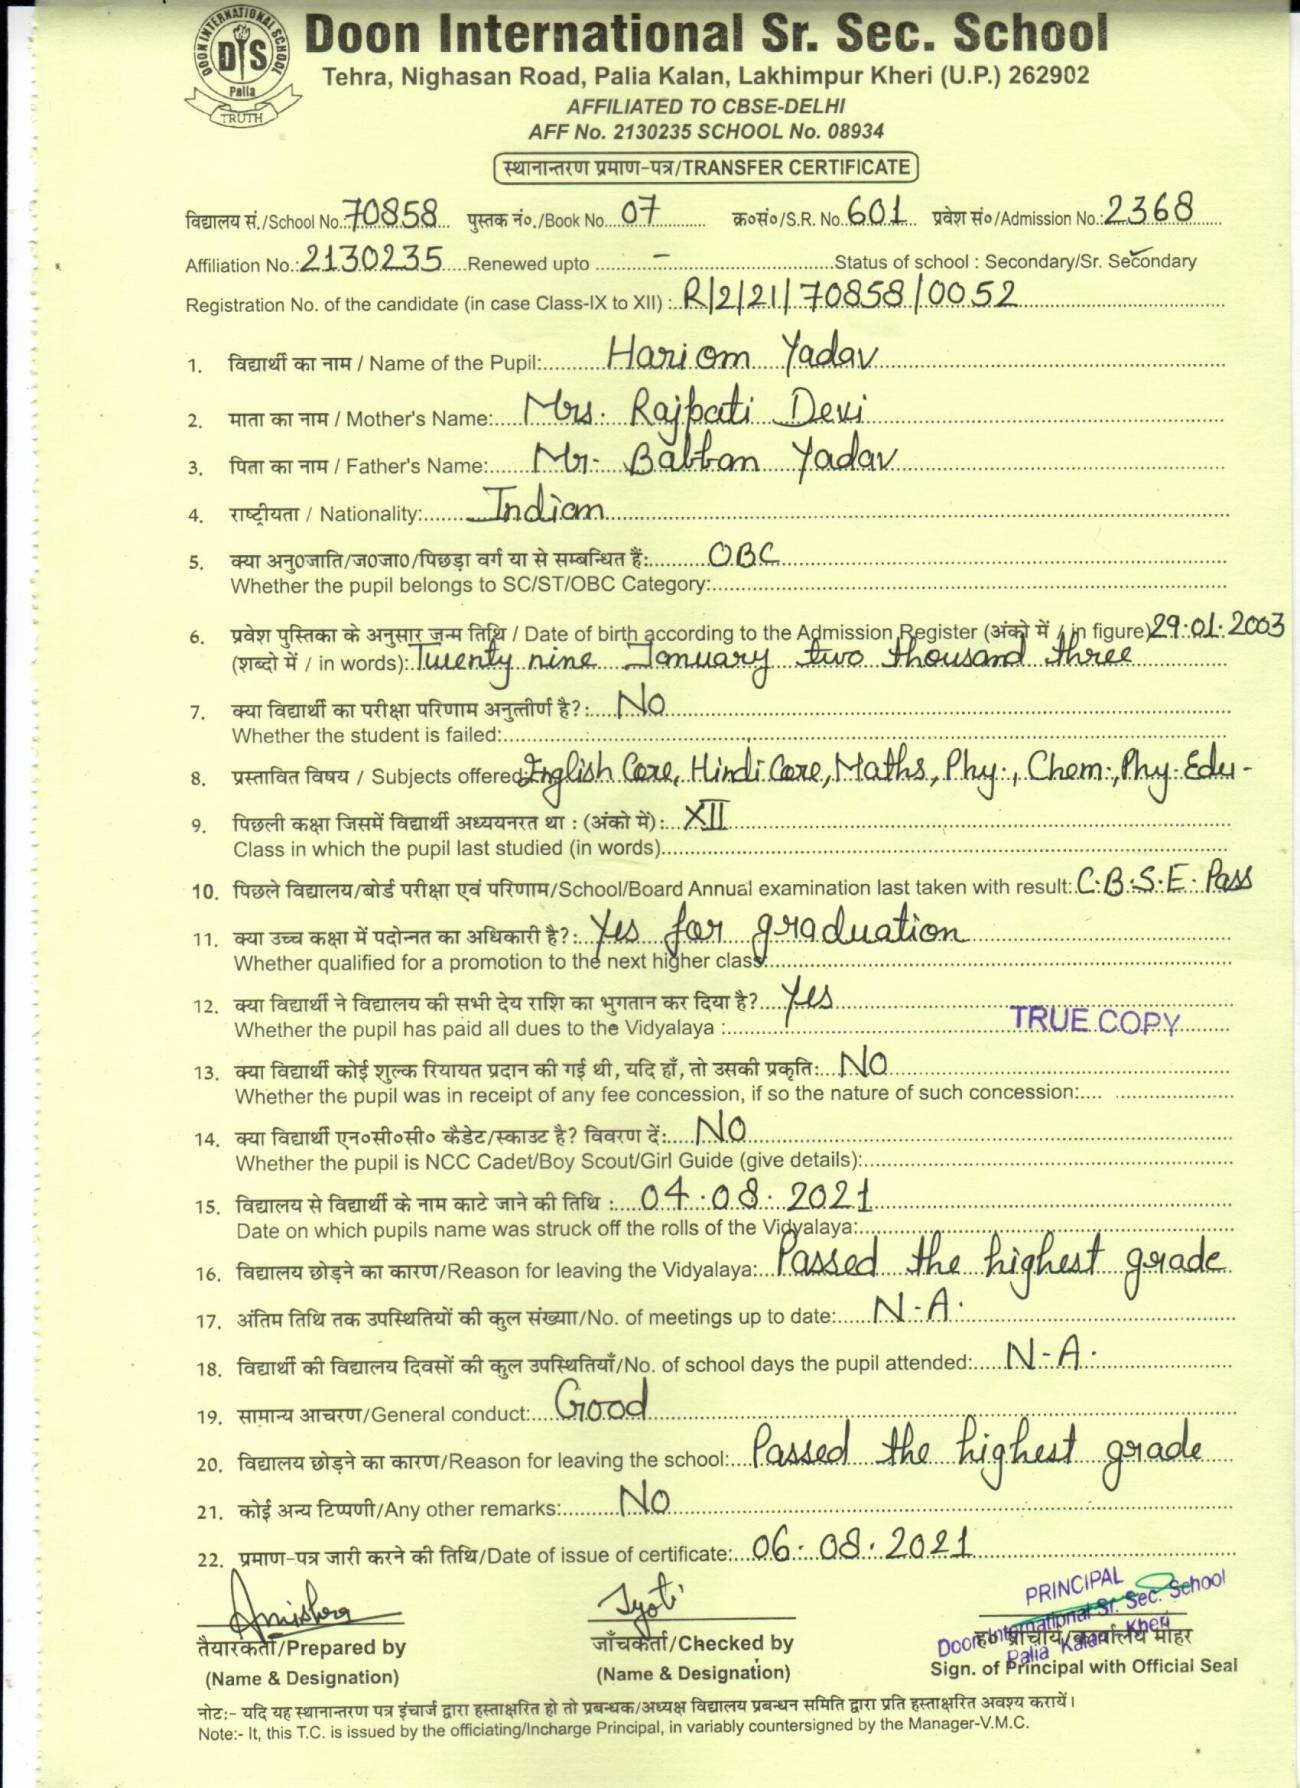 DOON INTERNATIONAL SCHOOL
DIS
Palia
TRUTH
Doon International Sr. Sec. School
Tehra, Nighasan Road, Palia Kalan, Lakhimpur Kheri (U.P.) 262902
AFFILIATED TO CBSE-DELHI
AFF No. 2130235 SCHOOL No. 08934
स्थानान्तरण प्रमाण-पत्र/TRANSFER CERTIFICATE
विद्यालय सं./School No.: 70858 पुस्तक नं०./Book No. 07 क्र०सं०/S.R. No. 601 प्रवेश सं०/Admission No.: 2368
Affiliation No.: 2130235 Renewed upto – Status of school : Secondary/Sr. Secondary
Registration No. of the candidate (in case Class-IX to XII) : R/2/21/70858/0052
1. विद्यार्थी का नाम / Name of the Pupil: Hariom Yadav
2. माता का नाम / Mother's Name: Mrs. Rajpati Devi
3. पिता का नाम / Father's Name: Mr. Babban Yadav
4. राष्ट्रीयता / Nationality: Indian
5. क्या अनु०जाति/ज०जा०/पिछड़ा वर्ग या से सम्बन्धित हैं: OBC
Whether the pupil belongs to SC/ST/OBC Category:
6. प्रवेश पुस्तिका के अनुसार जन्म तिथि / Date of birth according to the Admission Register (अंको में / in figure) 29.01.2003
(शब्दो में / in words): Twenty nine January two thousand three
7. क्या विद्यार्थी का परीक्षा परिणाम अनुत्तीर्ण है?: No
Whether the student is failed:
8. प्रस्तावित विषय / Subjects offered: English Core, Hindi Core, Maths, Phy., Chem., Phy. Edu-
9. पिछली कक्षा जिसमें विद्यार्थी अध्ययनरत था : (अंको में): XII
Class in which the pupil last studied (in words)
10. पिछले विद्यालय/बोर्ड परीक्षा एवं परिणाम/School/Board Annual examination last taken with result: C.B.S.E. Pass
11. क्या उच्च कक्षा में पदोन्नत का अधिकारी है?: Yes for graduation
Whether qualified for a promotion to the next higher class:
12. क्या विद्यार्थी ने विद्यालय की सभी देय राशि का भुगतान कर दिया है? Yes
Whether the pupil has paid all dues to the Vidyalaya :
TRUE COPY
13. क्या विद्यार्थी कोई शुल्क रियायत प्रदान की गई थी, यदि हाँ, तो उसकी प्रकृति: No
Whether the pupil was in receipt of any fee concession, if so the nature of such concession:
14. क्या विद्यार्थी एन०सी०सी० कैडेट/स्काउट है? विवरण दें: No
Whether the pupil is NCC Cadet/Boy Scout/Girl Guide (give details):
15. विद्यालय से विद्यार्थी के नाम काटे जाने की तिथि : 04.08.2021
Date on which pupils name was struck off the rolls of the Vidyalaya:
16. विद्यालय छोड़ने का कारण/Reason for leaving the Vidyalaya: Passed the highest grade
17. अंतिम तिथि तक उपस्थितियों की कुल संख्या/No. of meetings up to date: N.A.
18. विद्यार्थी की विद्यालय दिवसों की कुल उपस्थितियाँ/No. of school days the pupil attended: N.A.
19. सामान्य आचरण/General conduct: Good
20. विद्यालय छोड़ने का कारण/Reason for leaving the school: Passed the highest grade
21. कोई अन्य टिप्पणी/Any other remarks: No
22. प्रमाण-पत्र जारी करने की तिथि/Date of issue of certificate: 06.08.2021
Amishra
Jyoti
PRINCIPAL
Doon International Sr. Sec. School
Palia Kalan, Kheri
तैयारकर्ता/Prepared by
(Name & Designation)
जाँचकर्ता/Checked by
(Name & Designation)
ह० प्राचार्य/कार्यालय मोहर
Sign. of Principal with Official Seal
नोट:- यदि यह स्थानान्तरण पत्र इंचार्ज द्वारा हस्ताक्षरित हो तो प्रबन्धक/अध्यक्ष विद्यालय प्रबन्धन समिति द्वारा प्रति हस्ताक्षरित अवश्य करायें।
Note:- It, this T.C. is issued by the officiating/Incharge Principal, in variably countersigned by the Manager-V.M.C.